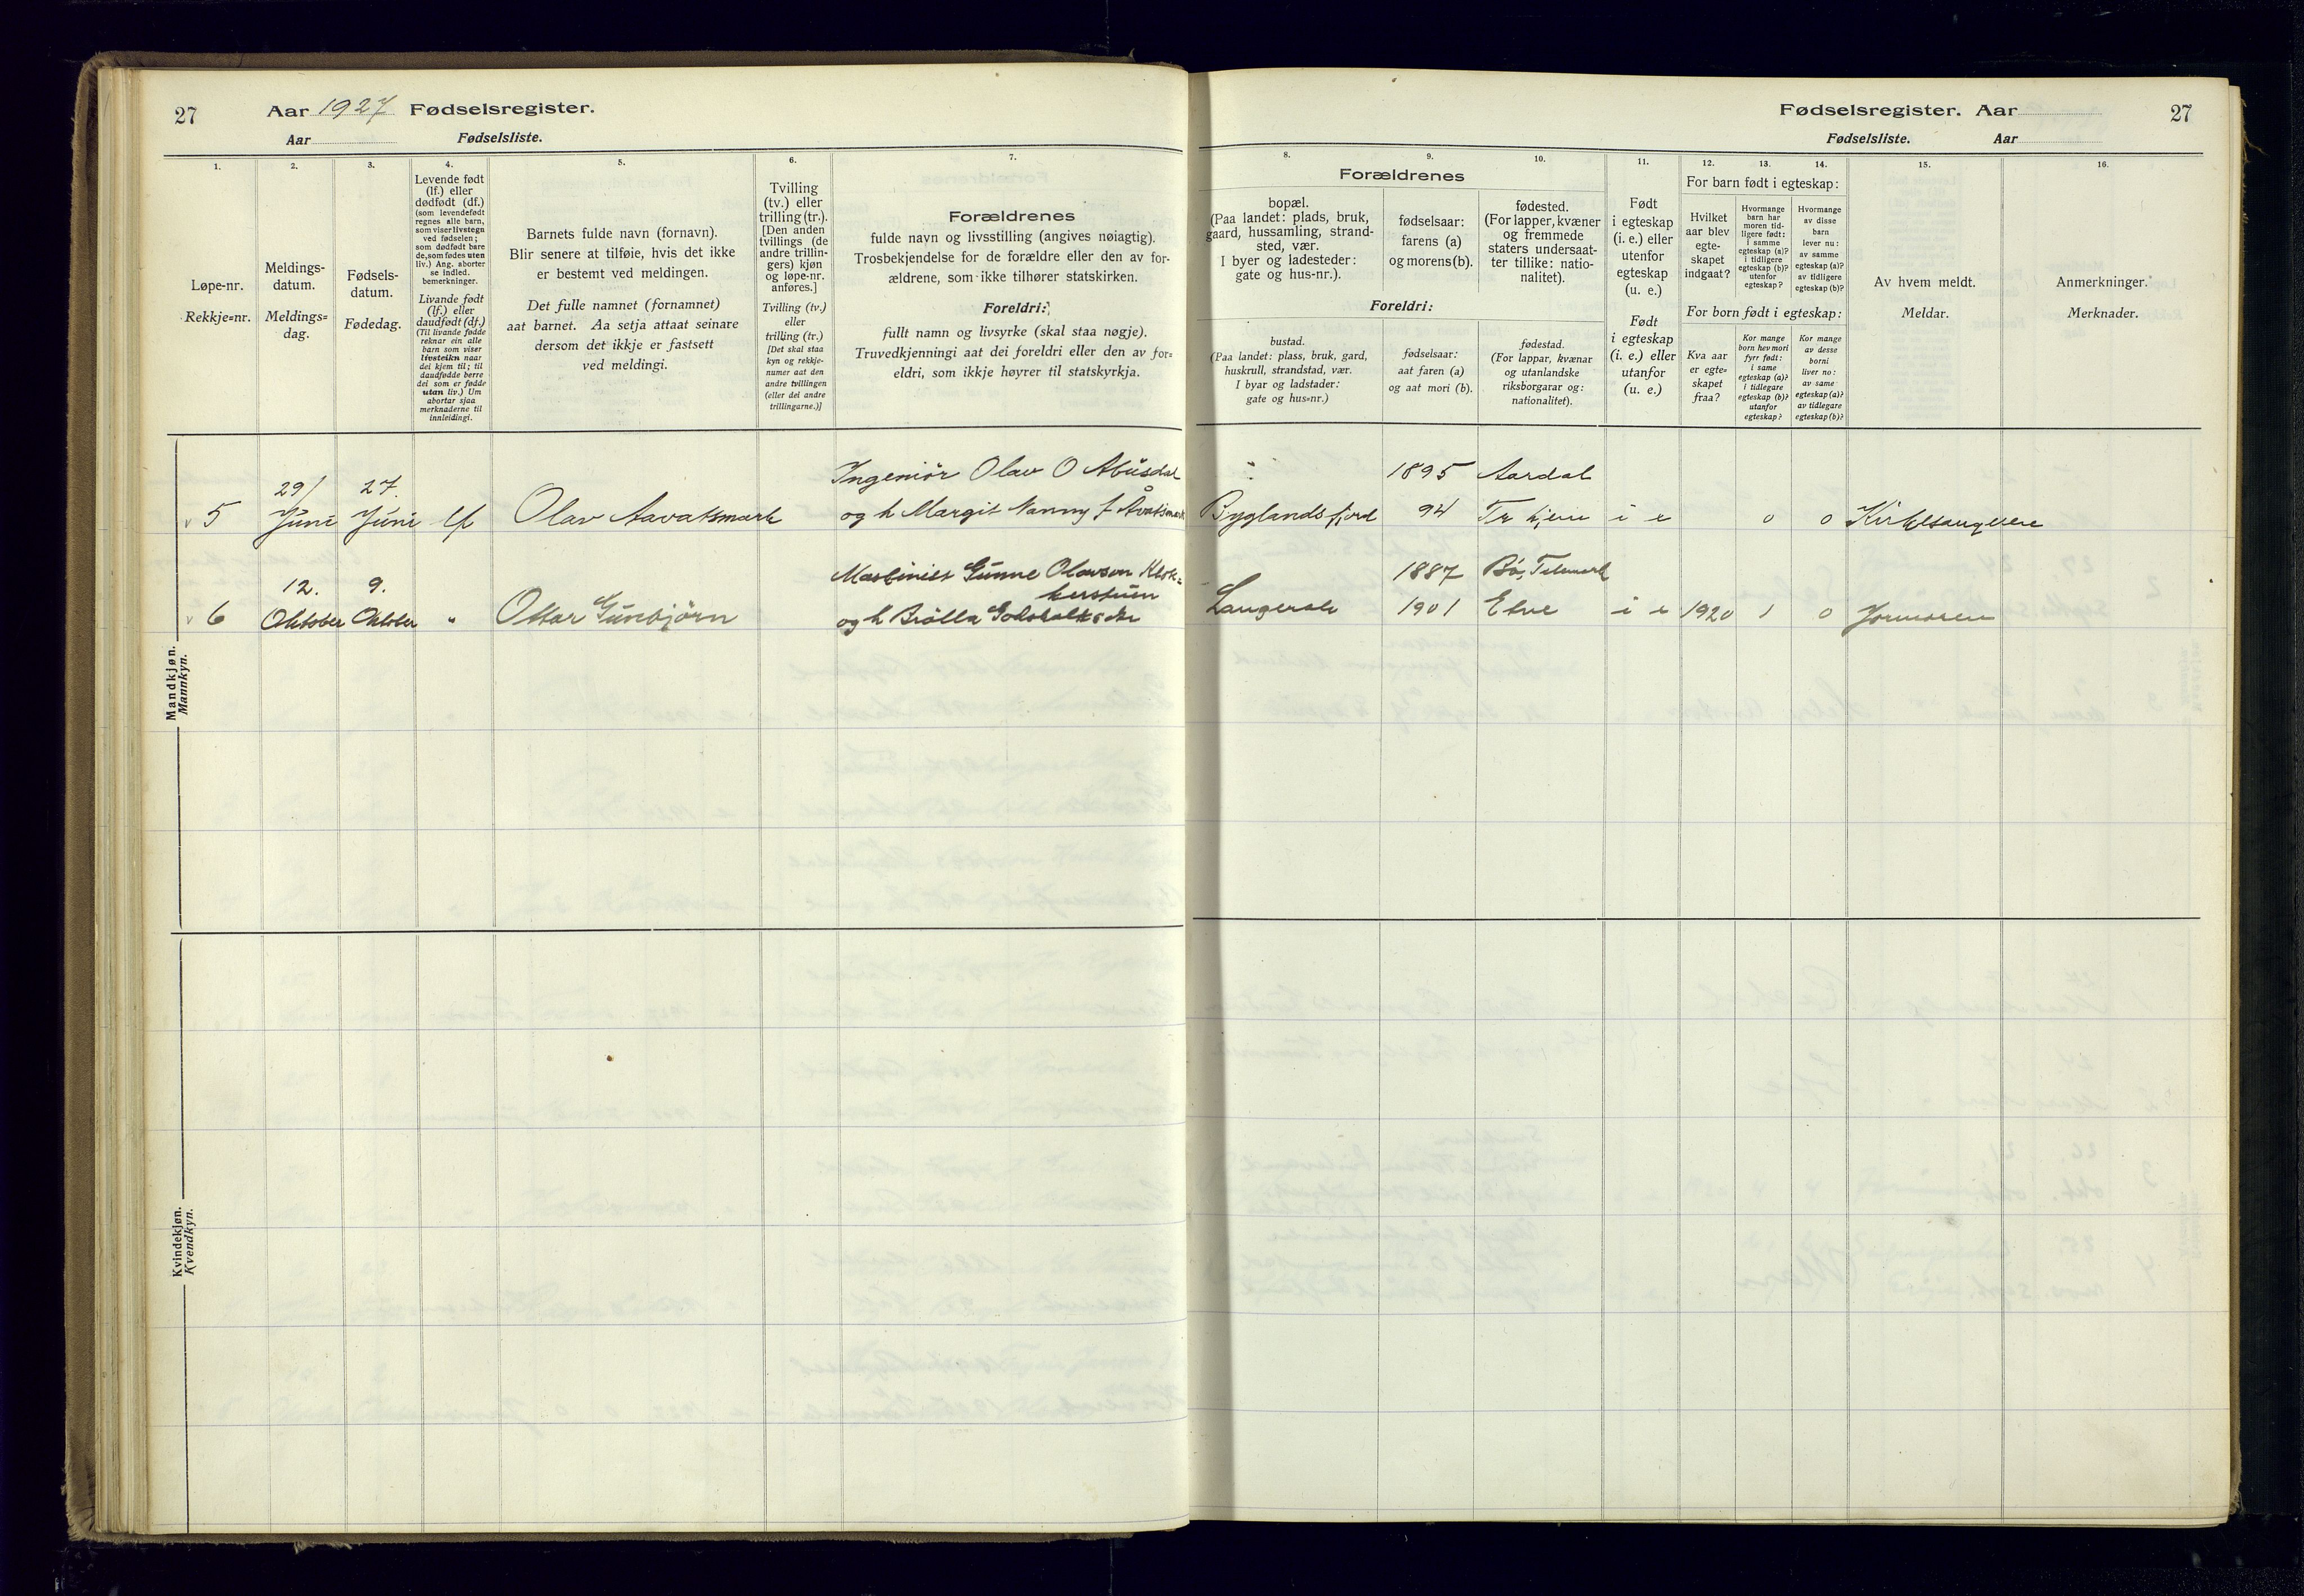 27 Aar 1927 Fødselsregister.
Aar Fødselsliste.
1. 2. 3. 4. 5. 6. 7.
Løpe-nr.
Rekkje=nr.
Meldings-
datum.
Meldings=
dag.
Fødsels-
datum.
Fødedag.
Levende født
(lf.) eller
dødfødt (df.)
(som levendefødt
regnes alle barn,
som viser livstegn
ved fødselen;
som dødfødt bare
de, som fødes uten
liv.) Ang. aborter
se indled.
bemerkninger.
Livande født
(lf.) eller
daudfødt (df.)
(Til livande fødde
reknar ein alle
barn som viser
livsteikn naar
dei kjem til; til
daudfødde berre
dei som er fødde
utan liv.) Um
abortar sjaa
merknaderne til
innleidingi.
Barnets fulde navn (fornavn).
Blir senere at tilføie, hvis det ikke
er bestemt ved meldingen.
Det fulle namnet (fornamnet)
aat barnet. Aa setja attaat seinare
dersom det ikkje er fastsett
ved meldingi.
Tvilling
(tv.) eller
trilling (tr.).
[Den anden
tvillings (de
andre trillin-
gers) kjøn
og løpe-nr.
anføres.]
Tvilling (tv.)
eller
trilling (tr.)
[Det skal staa
kyn og rekkje-
numer aat den
andre tvillingen
(eller dei andre
trillingarne.)]
Forældrenes
fulde navn og livsstilling (angives nøiagtig).
Trosbekjendelse for de forældre eller den av for-
ældrene, som ikke tilhører statskirken.
Foreldri:
fullt namn og livsyrke (skal staa nøgje).
Truvedkjenningi aat dei foreldri eller den av for=
eldri, som ikkje høyrer til statskyrkja.
Mandkjøn.
Mannkyn.
5 29/ Juni 27. Juni lf Olav Aavatsmark
Ingeniør Olav O Abusdal
og h Margit Nanny f Åvatsmark
6 12. Oktober 9. Oktober " Ottar Gunbjörn
Maskinist Gunne Olavson Klok=
kerstuen
og h
Kvindekjøn.
Kvendkyn.
Fødselsregister. Aar 27
Fødselsliste. Aar
8. 9. 10. 11. 12. 13. 14. 15. 16.
Forældrenes
bopæl.
(Paa landet: plads, bruk,
gaard, hussamling, strand-
sted, vær.
I byer og ladesteder:
gate og hus-nr.).
fødselsaar:
farens (a)
og morens (b).
fødested.
(For lapper, kvæner
og fremmede
staters undersaat-
ter tillike: natio-
nalitet).
Foreldri:
bustad.
(Paa landet: plass, bruk, gard,
huskrull, strandstad, vær.
I byar og ladstader:
gate og hus=nr.)
fødselsaar:
aat faren (a)
og aat mori (b).
fødestad.
(For lappar, kvænar
og utanlandske
riksborgarar og:
nationalitet).
Født
i egteskap
(i. e.) eller
utenfor
egteskap
(u. e.)
Født
i egteskap
(i. e.) eller
utanfor
(u. e.)
For barn født i egteskap:
Hvilket
aar blev
egte-
skapet
indgaat?
Hvormange
barn har
moren tid-
ligere født:
i samme
egteskap (a)?
i tidligere
egteskap (b)?
utenfor
egteskap?
Hvormange
av disse
barn
lever nu:
av samme
egteskap (a)?
av tidligere
egteskap (b)?
For born født i egteskap:
Kva aar
er egte=
skapet
fraa?
Kor mange
born hev mori
fyrr født:
i same
egteskap (a)?
i tidlegare
egteskap (b)?
utanfor
egteskap?
Kor mange
av desse
borni
liver no:
av same
egteskap (a)?
av tidlegare
egteskap (b)?
Av hvem meldt.
Meldar.
Anmerkninger.
Merknader.
1895 Aardal
Byglandsfjord 94 i e 0 0 Kirkesangeren
1887 Bö, Telemark
Langerak 1901 Etne i e 1920 1 0 Jormoren